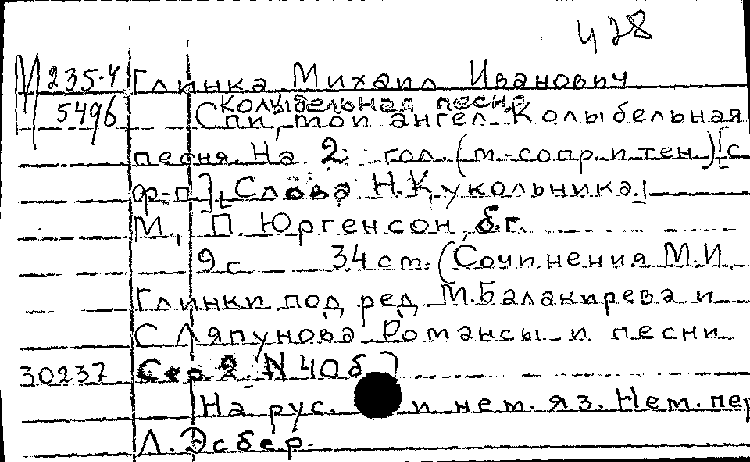 428
М 235-4 Глинка Михаил Иванович
Колыбельная песня
5496 Спи, мой ангел. Колыбельная
песня. На 2 гол. (м-сопр. и тен.) [с
ф-п]. Слова Н. Кукольника.
М., П. Юргенсон, б.г.
9 с 34 см. (Сочинения М.И.
Глинки под ред М. Балакирева и
С Ляпунова Романсы и песни
30237 Сер. 2 N 40б)
На рус. и нем. яз. Нем. пер
Л. Эсбер.